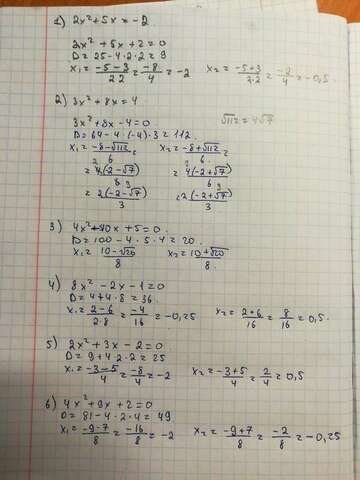 1) 2x² + 5x = -2
2x² + 5x + 2 = 0
D = 25 - 4·2·2 = 9
x₁ = (-5-3)/(2·2) = -8/4 = -2 x₂ = (-5+3)/(2·2) = -2/4 = -0,5
2) 3x² + 8x = 4
3x² + 8x - 4 = 0 √112 = 4√7
D = 64 - 4·(-4)·3 = 112
x₁ = (-8-√112)/6 = x₂ = (-8+√112)/6 =
= 4(-2-√7)/6 = 4(-2+√7)/6
= 2(-2-√7)/3 = 2(-2+√7)/3
3) 4x² - 10x + 5 = 0
D = 100 - 4·5·4 = 20
x₁ = (10-√20)/8 x₂ = (10+√20)/8
4) 8x² - 2x - 1 = 0
D = 4 + 4·8 = 36
x₁ = (2-6)/(2·8) = -4/16 = -0,25 x₂ = (2+6)/16 = 8/16 = 0,5
5) 2x² + 3x - 2 = 0
D = 9 + 4·2·2 = 25
x₁ = (-3-5)/4 = -8/4 = -2 x₂ = (-3+5)/4 = 2/4 = 0,5
6) 4x² + 9x + 2 = 0
D = 81 - 4·2·4 = 49
x₁ = (-9-7)/8 = -16/8 = -2 x₂ = (-9+7)/8 = -2/8 = -0,25